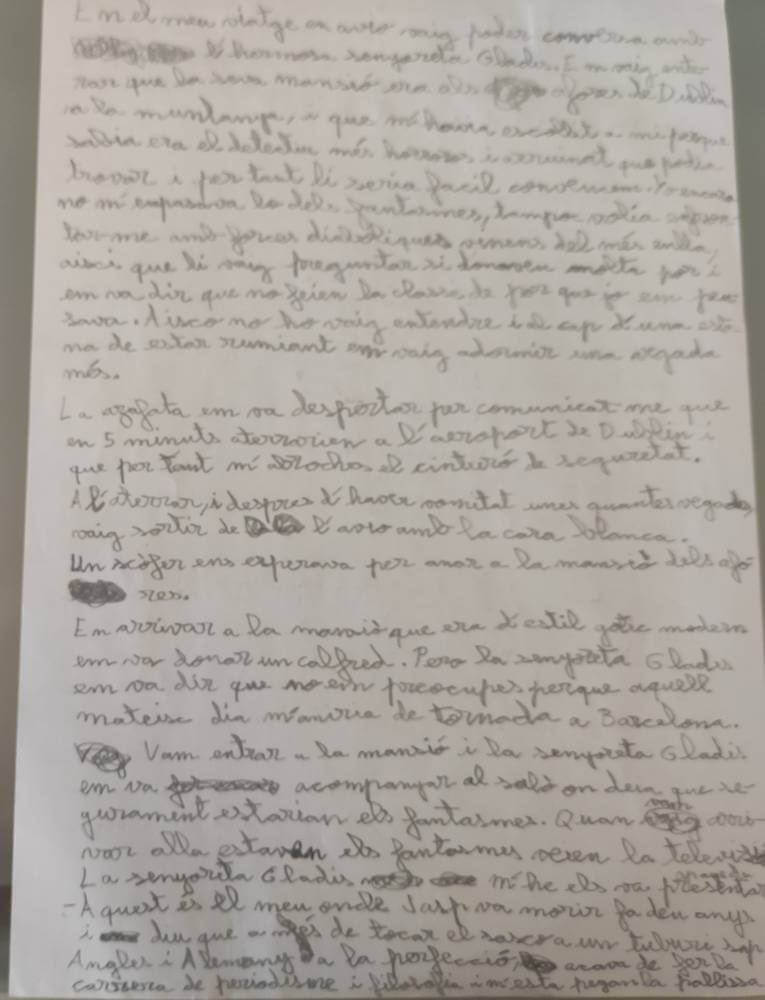 En el meu viatge en avio vaig poder conversa amb
l'hermosa senyoreta Gladis. Em vaig ente-
rar que la seva mansió era als afores de Dublin
a la muntanya, i que m'havia escollit a mi perque
sabia era el detectiu més horroros i arruinat que podia
trovar i per tant li seria facil convencem. Yo encara
no m'empasava lo dels fantasmes, tampoc volia enfron
tar-me amb forces diaboliques venens del més enlla,
aixi que li vaig preguntar si donaven molta por i
em va dir que no feien la classe de por que jo em pen
sava. Aixo no ho vaig entendre i al cap d'una esto
na de estar rumiant em vaig adormir una vegada
més.
La azafata em va despertar per comunicar-me que
en 5 minuts aterrorien a l'aeroport de Dublin i
que per tant m'abroches el cinturó de seguretat.
A l'aterrar, i despres d'haver vomitat unes quantes vegades,
vaig sortir de l'avio amb la cara blanca.
Un xofer ens esperava per anar a la mansió dels afo
res.
En arrivar a la mansió que era d'estil gotic modern
em va donar un calfred. Pero la senyoreta Gladis
em va dir que no em preocupes perque aquell
mateix dia m'aniria de tornada a Barcelona.
Vam entrar a la mansió i la senyoreta Gladis
em va acompanyar al saló on deia que se-
gurament estarian els fantasmes. Quan vam arri-
var alla estaven els fantasmes veien la televisió
La senyoreta Gladis m'he els va presentar
-Aquest és el meu onde Jasp va morir fa deu anys
i diu que a més de tocar el saxo a un tuburi sap
Angles i Alemany a la perfecció, acava de fer la
carrera de periodisme i filosofia i m'esta pegan la pallissa